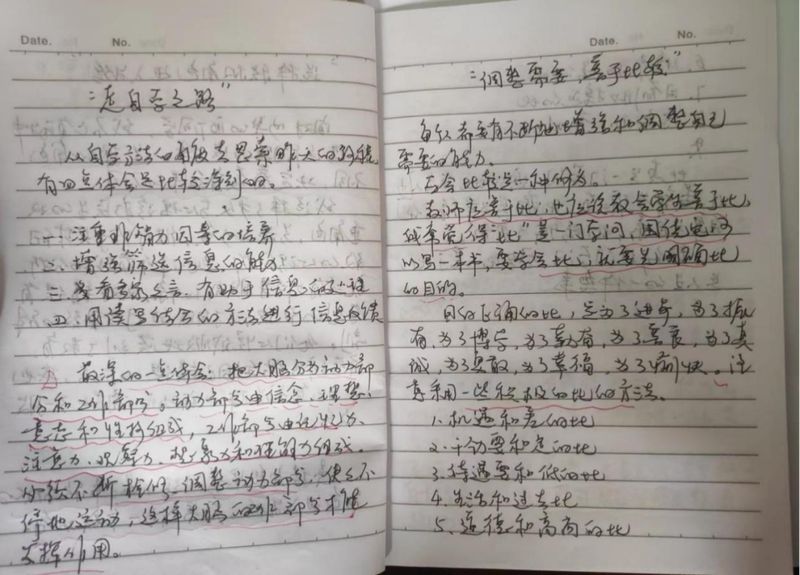 Date. No.
“走自学之路”
从自学方法的角度去思索昨天的路程,
有四点体会是比较深刻的。
一、注重非智力因素的培养
二、增强筛选信息的能力
三、发看多家之言,有助于信息的处理
四、用读写结合的方法进行信息反馈
最深的一点体会:把大脑分为动力部
分和工作部分。动力部分由信念、理想、
意志和性格组成,工作部分由记忆力、
注意力、观察力、想象力和理解力组成。
必须不断检修、调整动力部分,使之不
停地运动,这样大脑的工作部分才能
发挥作用。
Date. No.
“调整需要,善于比较”
每人都要有不断地增强和调整自己
需要的能力。
去会比较是一种能力。
教师应善于比,也应该教会学生善于比,
我常觉得“比”是一门学问,围绕它可
以写一本书,要学会比,就要先明确比
的目的。
目的正确的比,是为了进奋,为了振
有,为了博学,为了勤奋,为了善良,为了真
诚,为了勇敢,为了幸福,为了愉快。注
意采用一些积极的比的方法。
1. 机遇和差的比
2. 干劲要和足的比
3. 待遇要和低的比
4. 生活和过去比
5. 道德和高尚的比